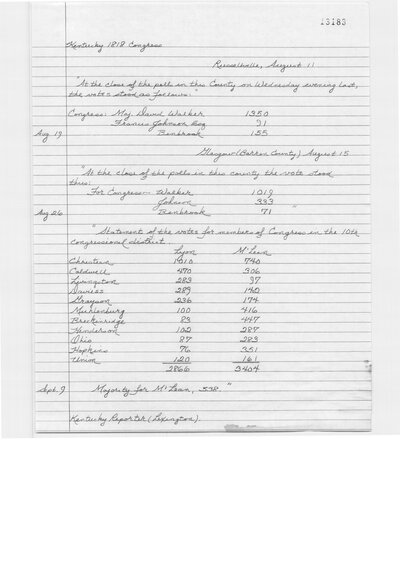 13183
Kentucky 1818 Congress
Russellville, August 11
"At the close of the polls in this County on Wednesday evening last,
the votes stood as follows:"
Congress: Maj. David Walker 1350
Francis Johnson Esq 91
Aug 19 Benbrook 155
Glasgow (Barren County) August 15
"At the close of the polls in this county the vote stood
thus:
For Congress - Walker 1019
Johnson 333
Aug 26 Benbrook 71 "
"Statement of the votes for member of Congress in the 10th
congressional district.
Lyon M'Lean
Christian 1010 740
Caldwell 470 306
Livingston 283 97
Daviess 289 140
Grayson 236 174
Muhlenburg 100 416
Breckenridge 83 447
Henderson 102 287
Ohio 87 283
Hopkins 76 351
Union 120 161
2866 3404
Sept. 9 Majority for M'Lean, 538."
Kentucky Reporter (Lexington).